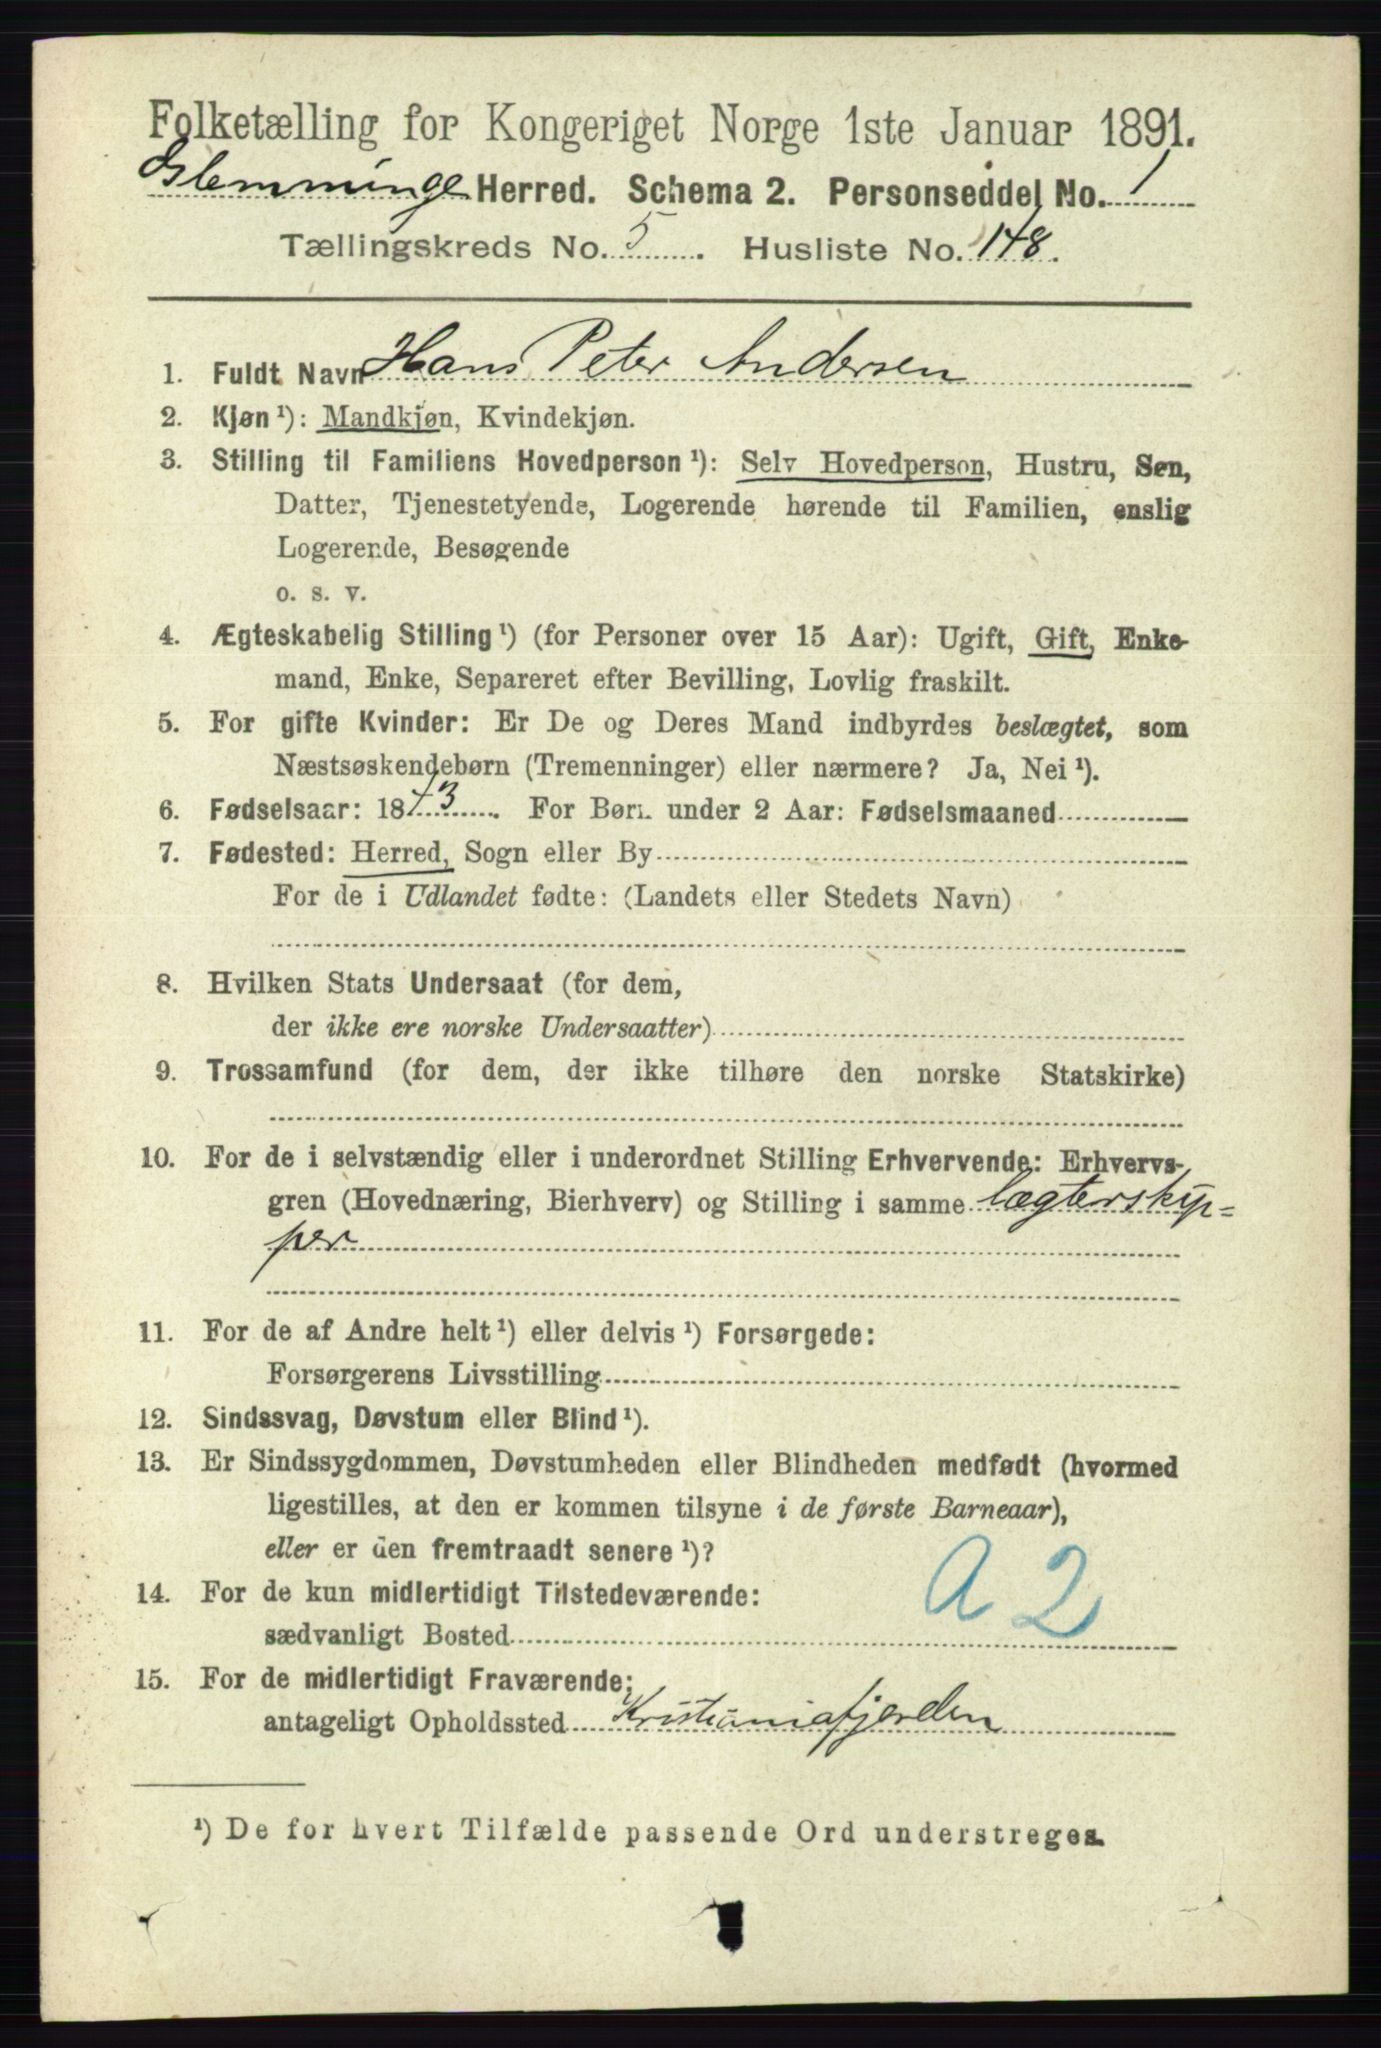 Folketælling for Kongeriget Norge 1ste Januar 1891.
Glemminge Herred. Schema 2. Personseddel No. 1
Tællingskreds No. 5. Husliste No. 148.
1. Fuldt Navn Hans Peter Andersen
2. Kjøn ¹): Mandkjøn, Kvindekjøn.
3. Stilling til Familiens Hovedperson ¹): Selv Hovedperson, Hustru, Søn,
Datter, Tjenestetyende, Logerende hørende til Familien, enslig
Logerende, Besøgende
o. s. v.
4. Ægteskabelig Stilling ¹) (for Personer over 15 Aar): Ugift, Gift, Enke-
mand, Enke, Separeret efter Bevilling, Lovlig fraskilt.
5. For gifte Kvinder: Er De og Deres Mand indbyrdes beslægtet, som
Næstsøskendebørn (Tremenninger) eller nærmere? Ja, Nei ¹).
6. Fødselsaar: 1843. For Børn under 2 Aar: Fødselsmaaned
7. Fødested: Herred, Sogn eller By
For de i Udlandet fødte: (Landets eller Stedets Navn)
8. Hvilken Stats Undersaat (for dem,
der ikke ere norske Undersaatter)
9. Trossamfund (for dem, der ikke tilhøre den norske Statskirke)
10. For de i selvstændig eller i underordnet Stilling Erhvervende: Erhvervs-
gren (Hovednæring, Bierhverv) og Stilling i samme lægterskip=
per
11. For de af Andre helt ¹) eller delvis ¹) Forsørgede:
Forsørgerens Livsstilling
12. Sindssvag, Døvstum eller Blind ¹).
13. Er Sindssygdommen, Døvstumheden eller Blindheden medfødt (hvormed
ligestilles, at den er kommen tilsyne i de første Barneaar),
eller er den fremtraadt senere ¹)?
A 2
14. For de kun midlertidigt Tilstedeværende:
sædvanligt Bosted
15. For de midlertidigt Fraværende:
antageligt Opholdssted Kristianiafjorden
¹) De for hvert Tilfælde passende Ord understreges.